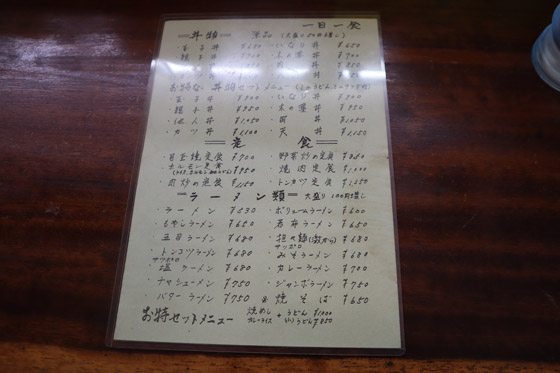 一日一食
丼物 単品
・玉子丼 ¥650 ・いなり丼 ¥650
・親子丼 ・木の葉丼 ¥700
お得な丼物セットメニュー
・玉子丼 ¥900 ・いなり丼 ¥900
・親子丼 ¥950 ・木の葉丼 ¥950
・他人丼 ¥1,050 ・肉丼 ¥1,050
・カツ丼 ¥1,100 ・天丼 ¥1,150
定食
・目玉焼定食 ¥700 ・野菜炒め定食 ¥860
・ホルモン定食 ¥950 ・焼肉定食 ¥1,000
・肉炒め定食 ・トンカツ定食
ラーメン類 大盛り100円増し
・ラーメン ¥530 ・ボリュームラーメン ¥600
・もやしラーメン ¥650 ・若布ラーメン ¥650
・五目ラーメン ¥680 ・担々麺 ¥680
・トンコツラーメン ¥680 ・サッポロみそラーメン ¥680
・サッポロ塩ラーメン ¥680 ・カレーラーメン ¥700
・チャシューメン ¥750 ・ジャンボラーメン ¥750
・バターラーメン ¥750 焼そば ¥650
お特セットメニュー 焼めし カレーライス + うどん